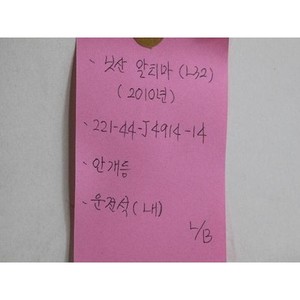 · 닛산 알티마 (L32)
(2010년)
· 221-44-J4914-14
· 안개등
· 운전석 (내)
L/B